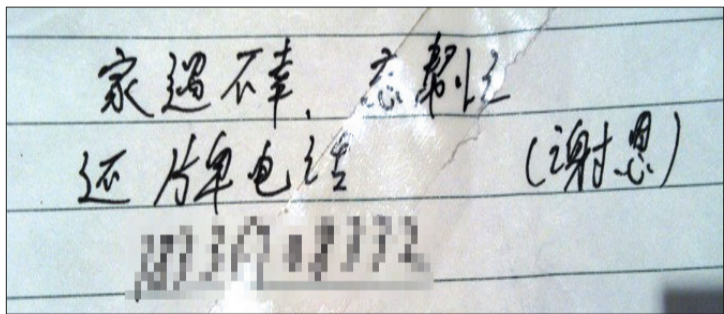 家遇不幸，忘帮忙
还牌电话 （谢恩）